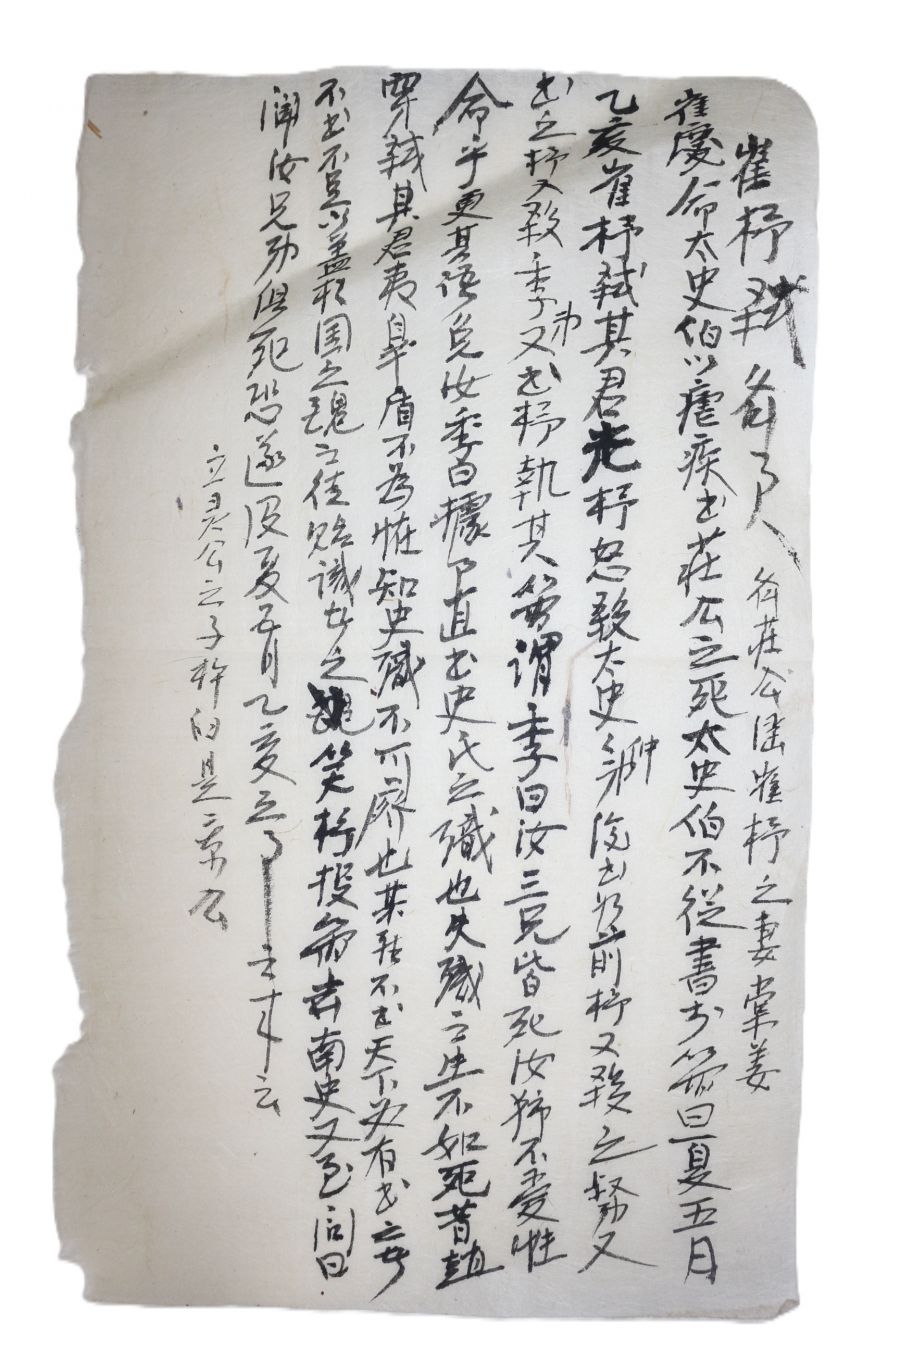 崔杼弑齐君 齐莊公淫崔杼之妻棠姜
崔慶命太史伯以瘧疾书莊公之死太史伯不從書于簡曰夏五月
乙亥崔杼弑其君光杼怒殺太史 仲復书如前杼又殺之叔又
书之杼又殺季弟又书杼執其簡謂季曰汝三兄皆死汝獨不愛性
命乎更其語免汝季曰據事直书史氏之職也失職之生不如死昔趙
穿弑其君夷皋盾不为 知史職不可廢也某不书天下必有书之者
不书不足以盖相国之醜之徒貽識者之 笑杼投簡去南史又至問曰
闻汝兄弟俱死恐遂没夏五月乙亥之事 云
立灵公之子杵臼是景公